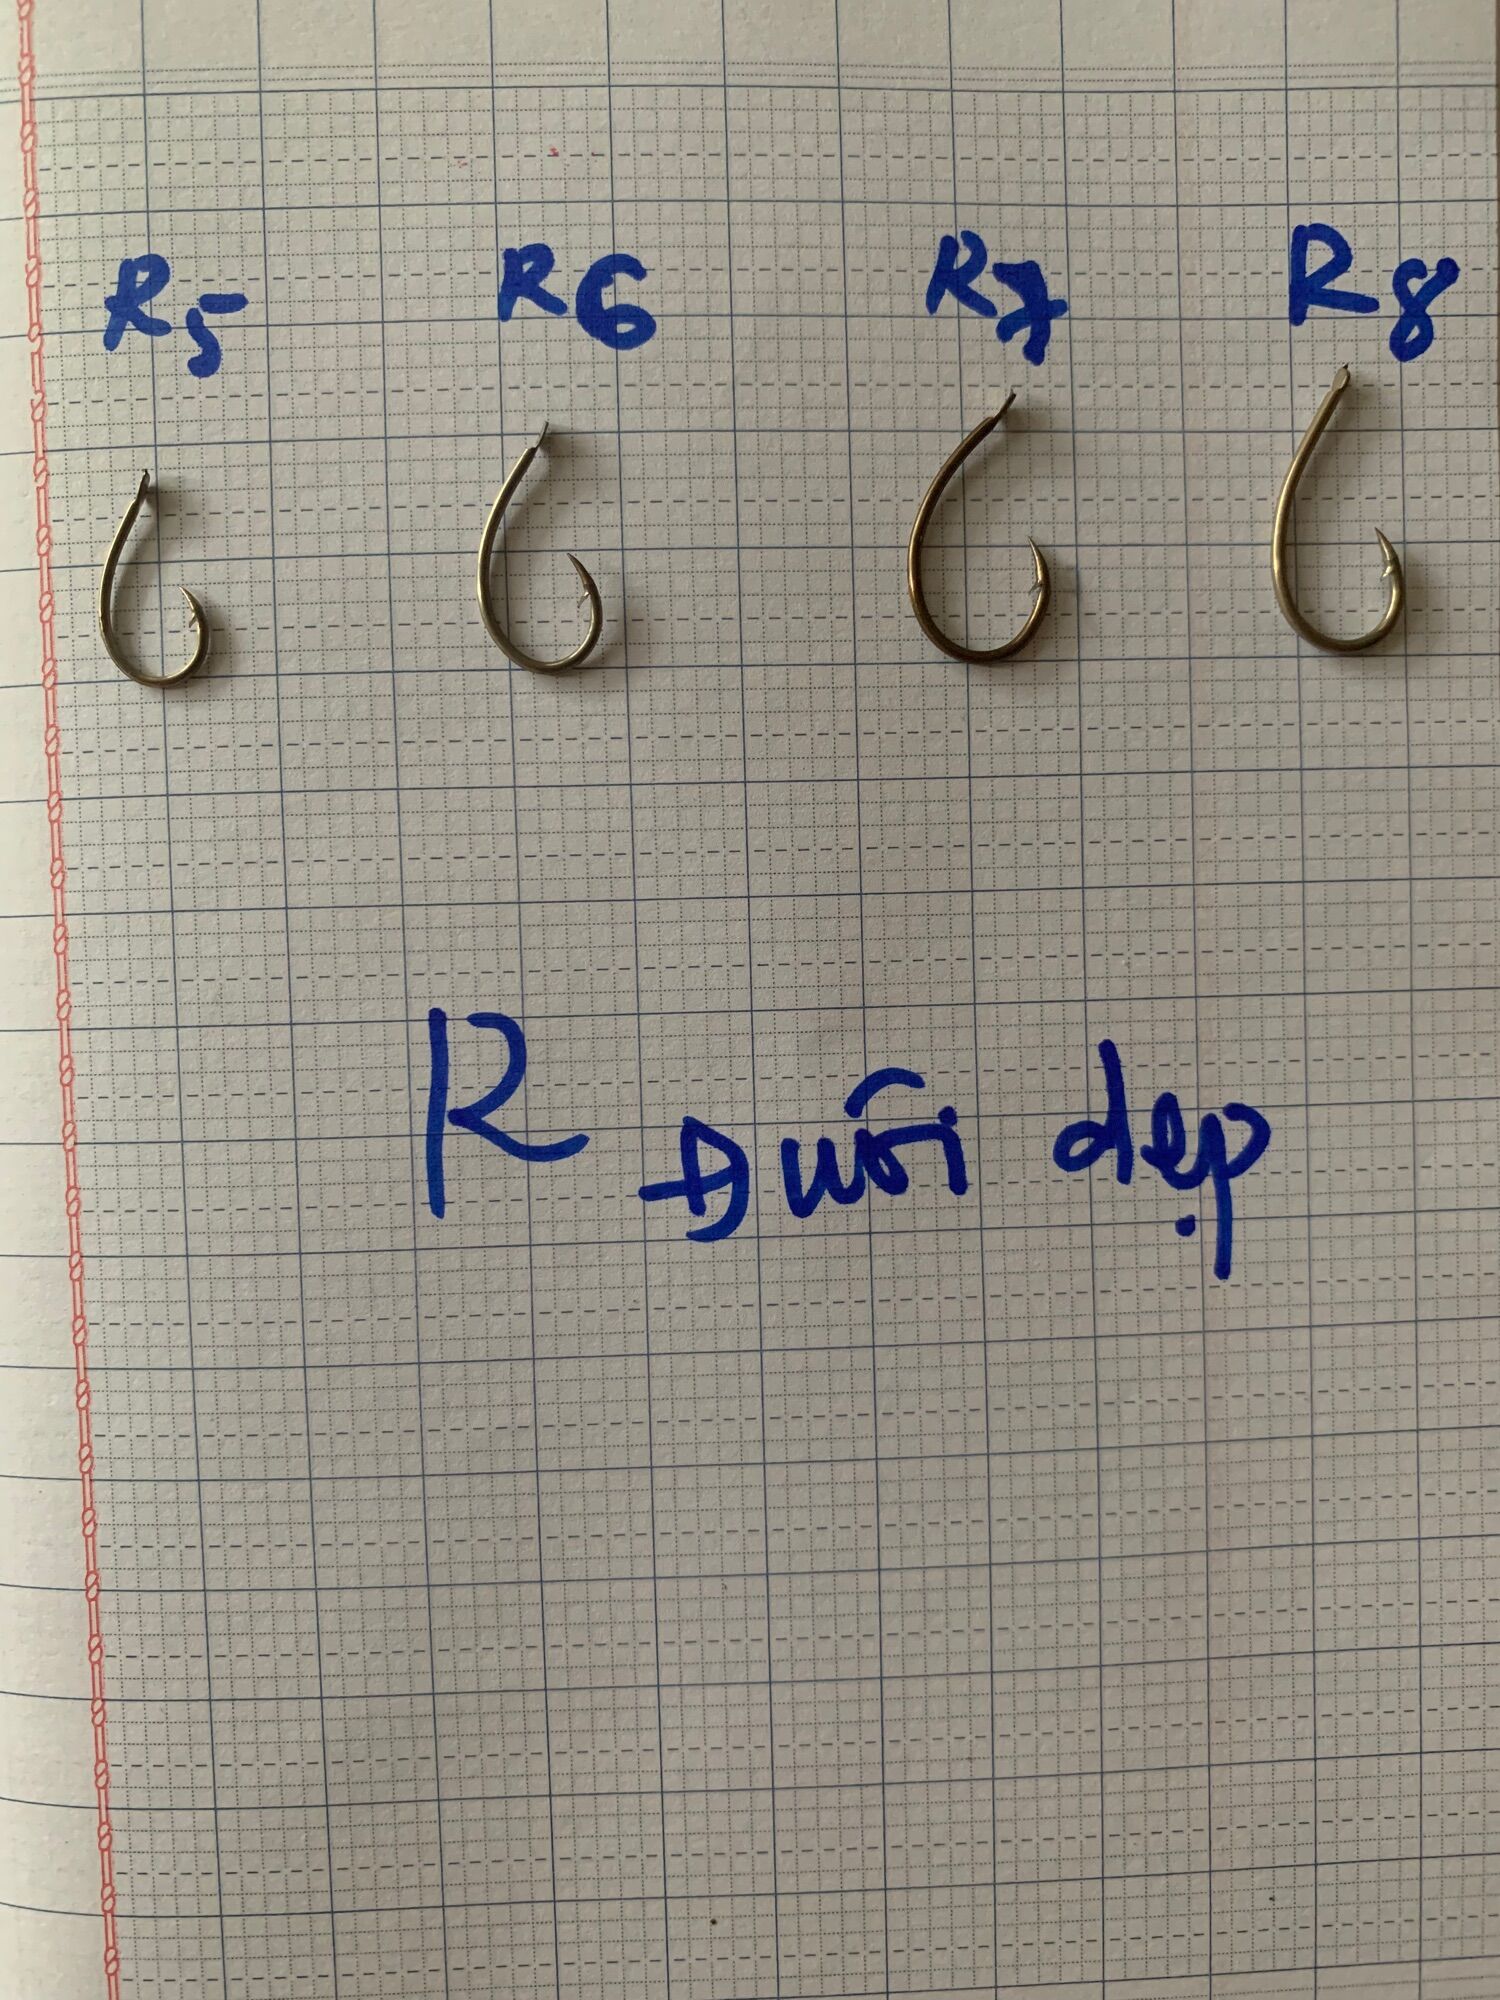 R5 R6 R7 R8
R Đuôi dẹp